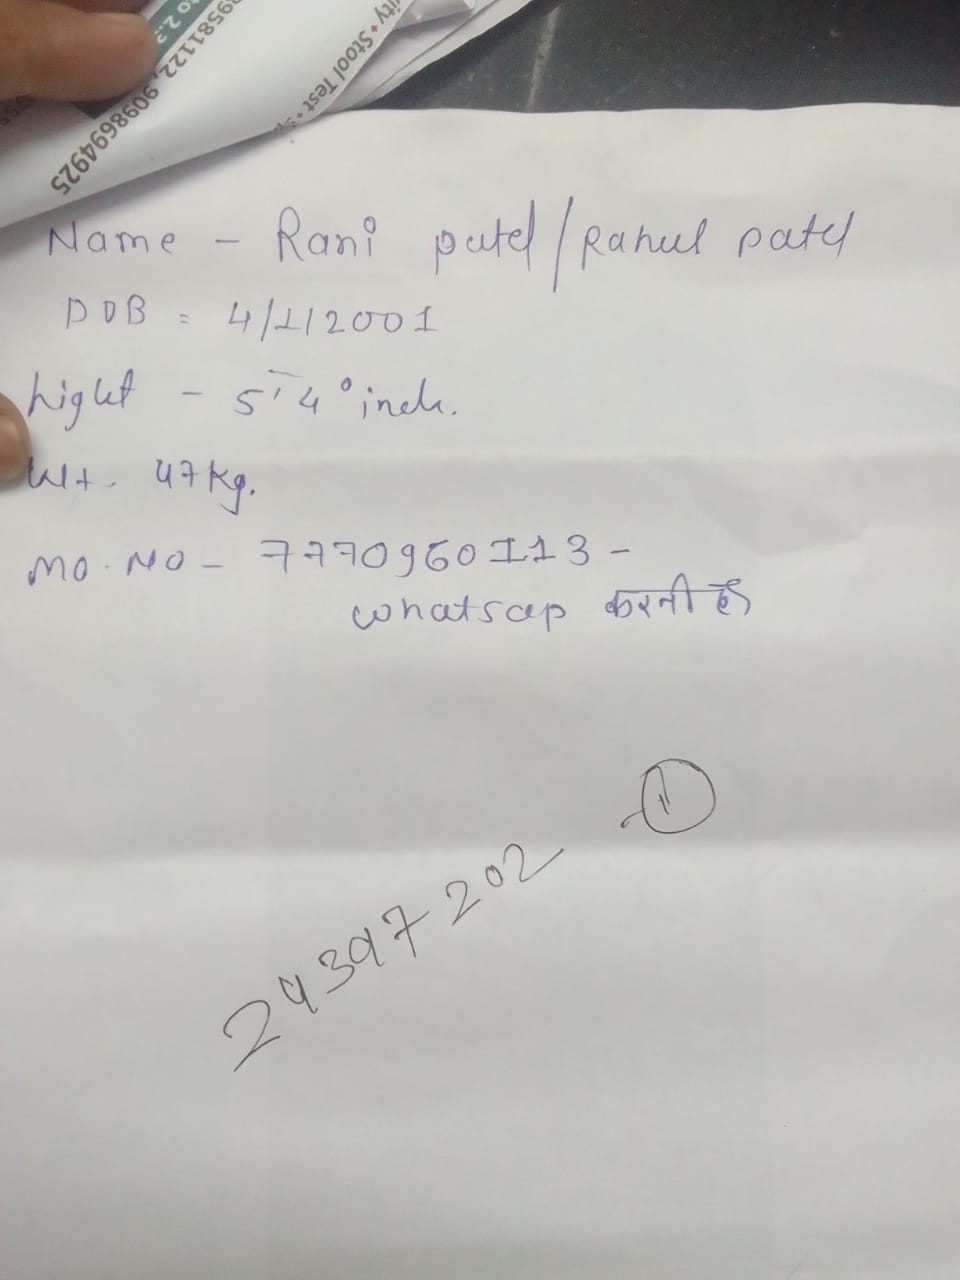 to 2.2
9581122, 9098694925
ity • Stool Test •
Name - Rani patel/Rahul patel
DOB = 4/1/2001
hight - 5'4° inch.
Wt. 47kg.
MO. NO - 7770960113 -
whatsap करनी है
1
24397202